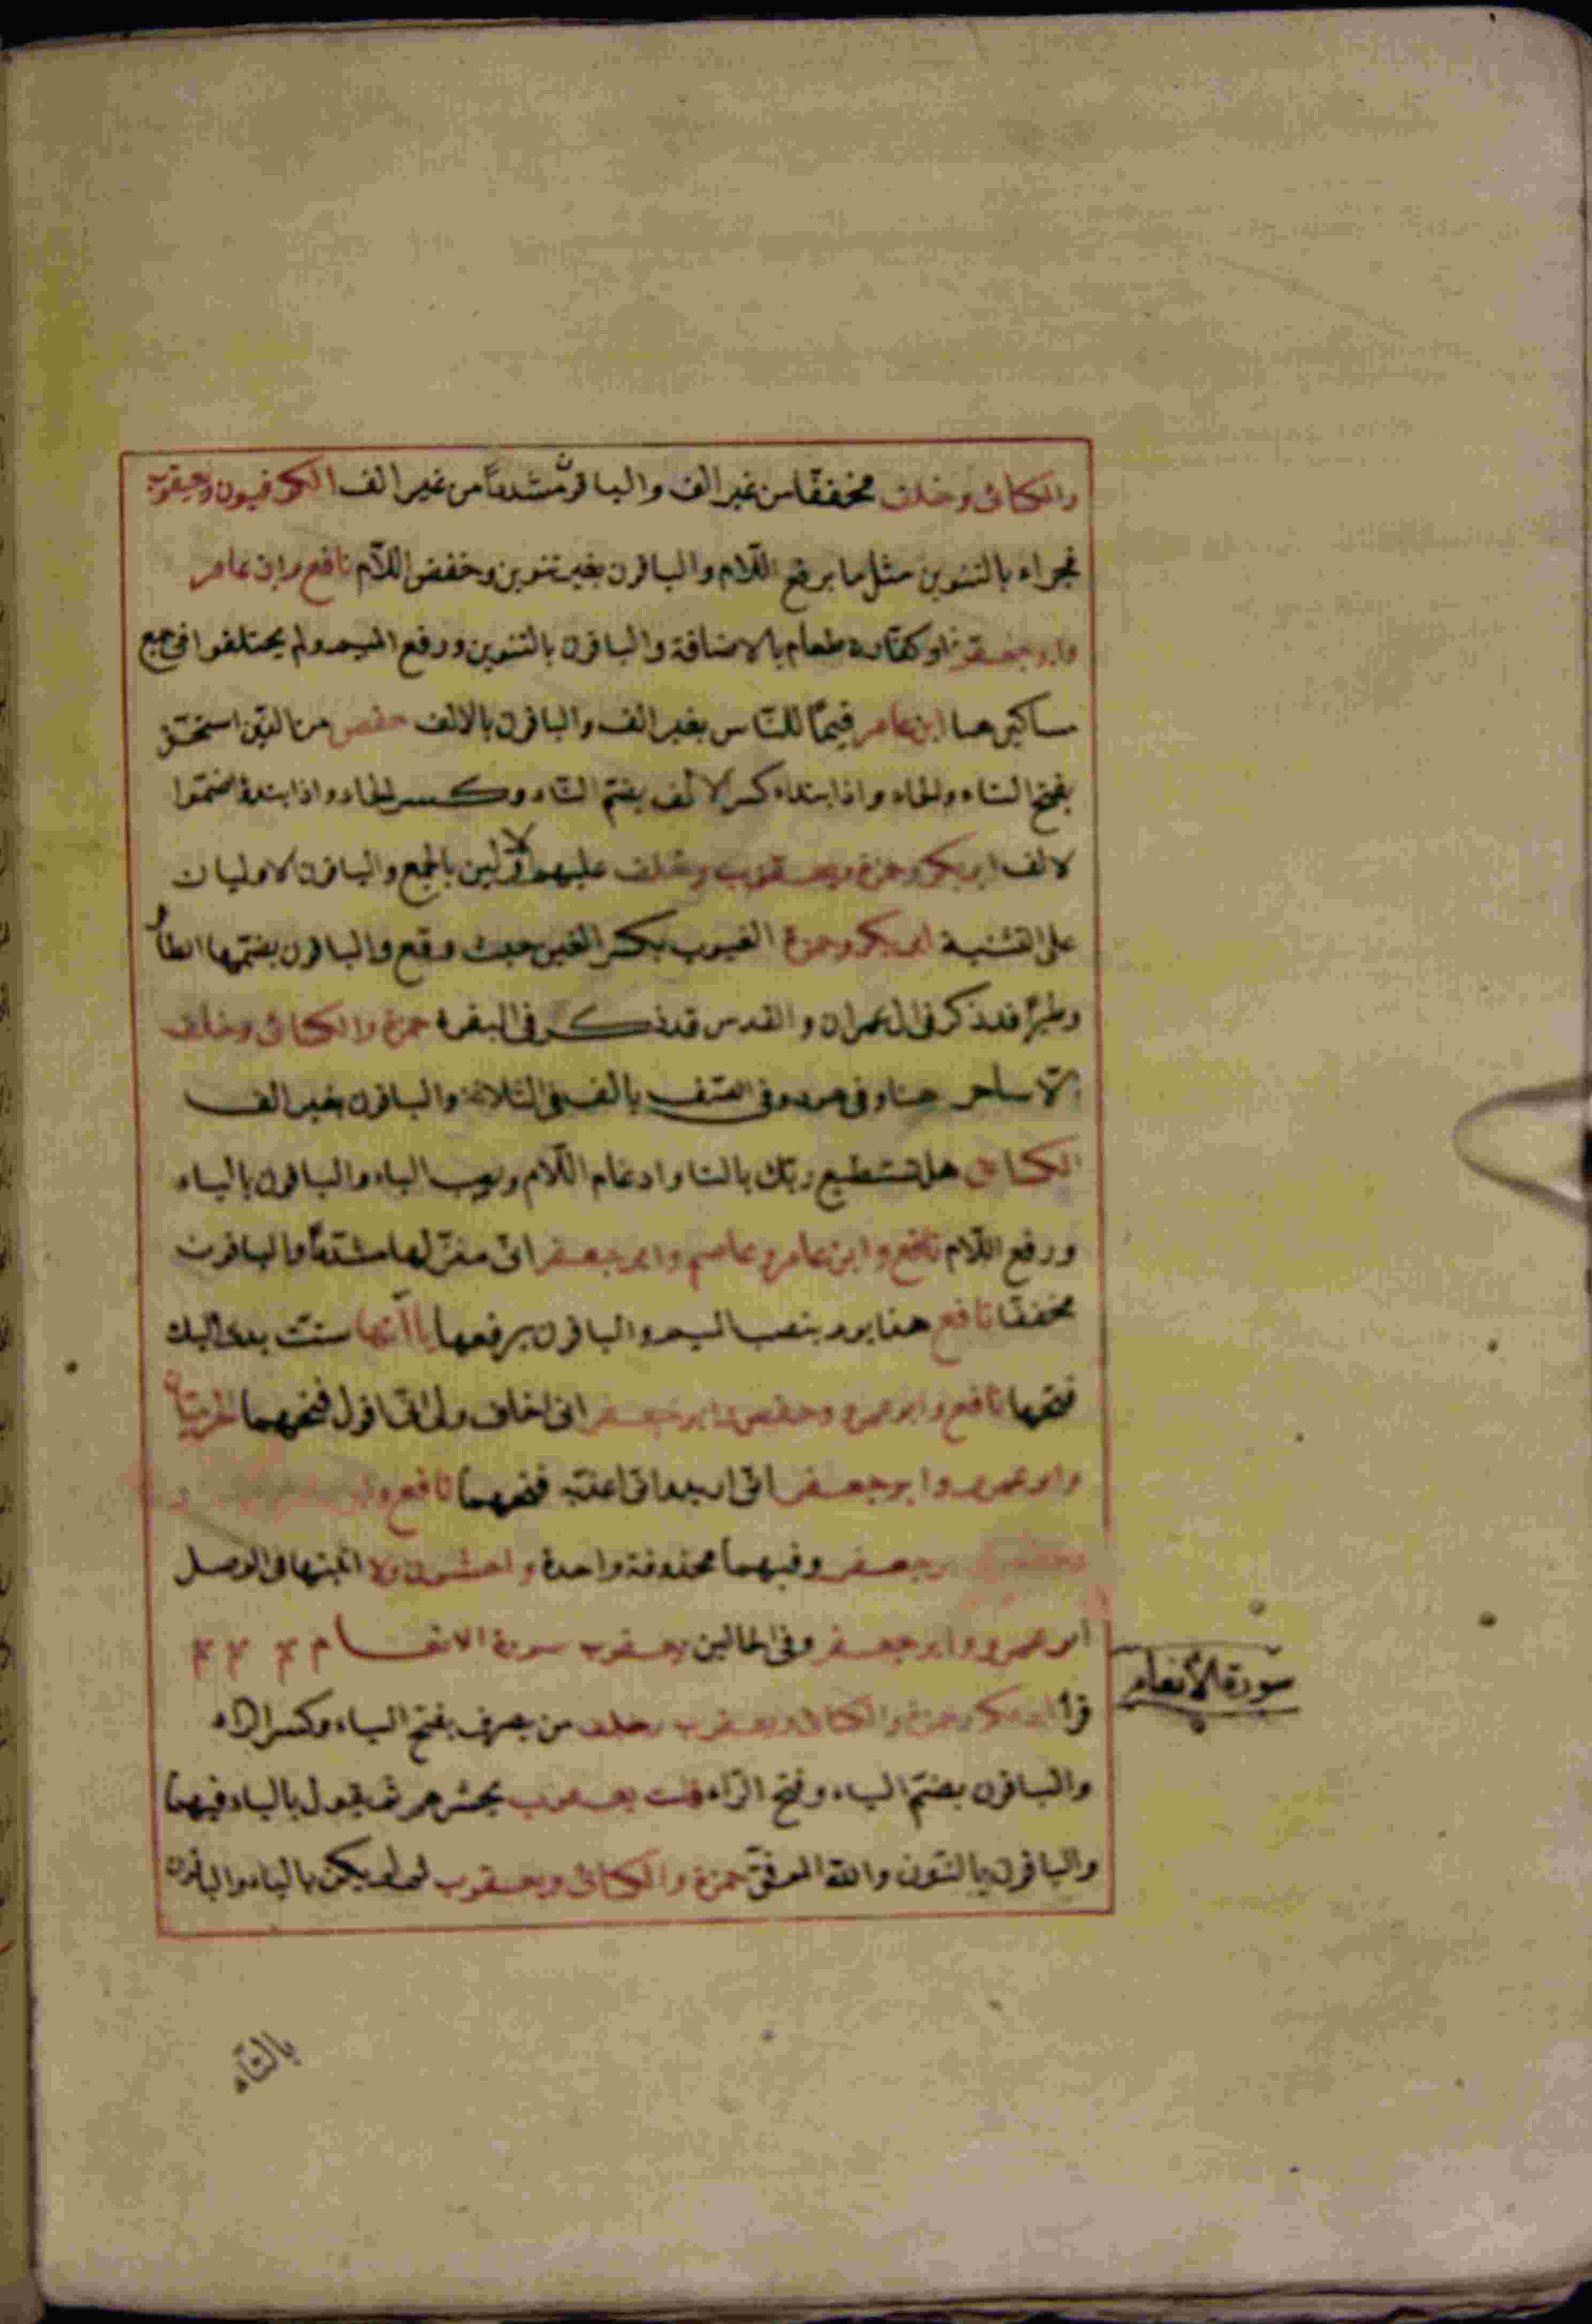 والكسائى وخلف مخففا من غير الف والباقون مشددا من غير الف الكوفيون ويعقوب
فجزاء بالتنوين مثل ما برفع اللام والباقون بغير تنوين وخفض اللام نافع وابن عامر
وابو جعفر او كفارة طعام بالاضافة والباقون بالتنوين ورفع الميم ولم يختلفوا فى جمع
مساكين هنا ابن عامر قيما للناس بغير الف والباقون بالالف حفص من الذين استحق
بفتح التاء والحاء واذا ابتداء كسر الالف بضم التاء وكسر الحاء واذا ابتدؤا ضموا
الالف ابو بكر وحمزة ويعقوب وخلف عليهم الاولين بالجمع والباقون الاوليان
على التثنية ابو بكر وحمزة الغيوب بكسر الغين حيث وقع والباقون بضمها الطائر
وطيرا قد ذكر فى ال عمران والقدس قد ذكر فى البقرة حمزة والكسائى وخلف
الا ساحر هنا وفى هود وفى الصف بالف فى الثلاثة والباقون بغير الف
الكسائى هل تستطيع ربك بالتا وادغام اللام ونصب الباء والباقون بالياء
ورفع اللام نافع وابن عامر وعاصم وابو جعفر انى منزلها مشددا والباقون
مخففا نافع هذا يوم بنصب الميم والباقون برفعها ياآتها ست يدى اليك
فتحها نافع وابو عمرو وحفص وابو جعفر انى اخاف ولى ان اقول فتحهما الحرميان
وابو عمرو وابو جعفر انى اريد فانى اعذبه فتحهما نافع
وابو جعفر وفيهما محذوفة واحدة واخشون ولا اثبتها فى الوصل
ابو عمرو وابو جعفر وفى الحالين يعقوب سورة الانعام
قرأ ابو بكر وحمزة والكسائى ويعقوب وخلف من يصرف بفتح الياء وكسر الراء
والباقون بضم الياء وفتح الراء قلت يعقوب يحشرهم ثم يقول بالياء فيهما
والباقون بالنون والله الموفق حمزة والكسائى ويعقوب ثم لم يكن بالياء والباقون
سورة الانعام
بالتاء